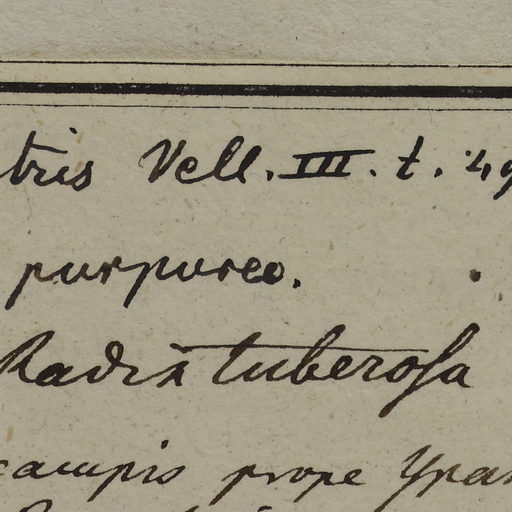 tris Vell. III. t. 49
purpureo.
Radix tuberosa
campis prope Ypan